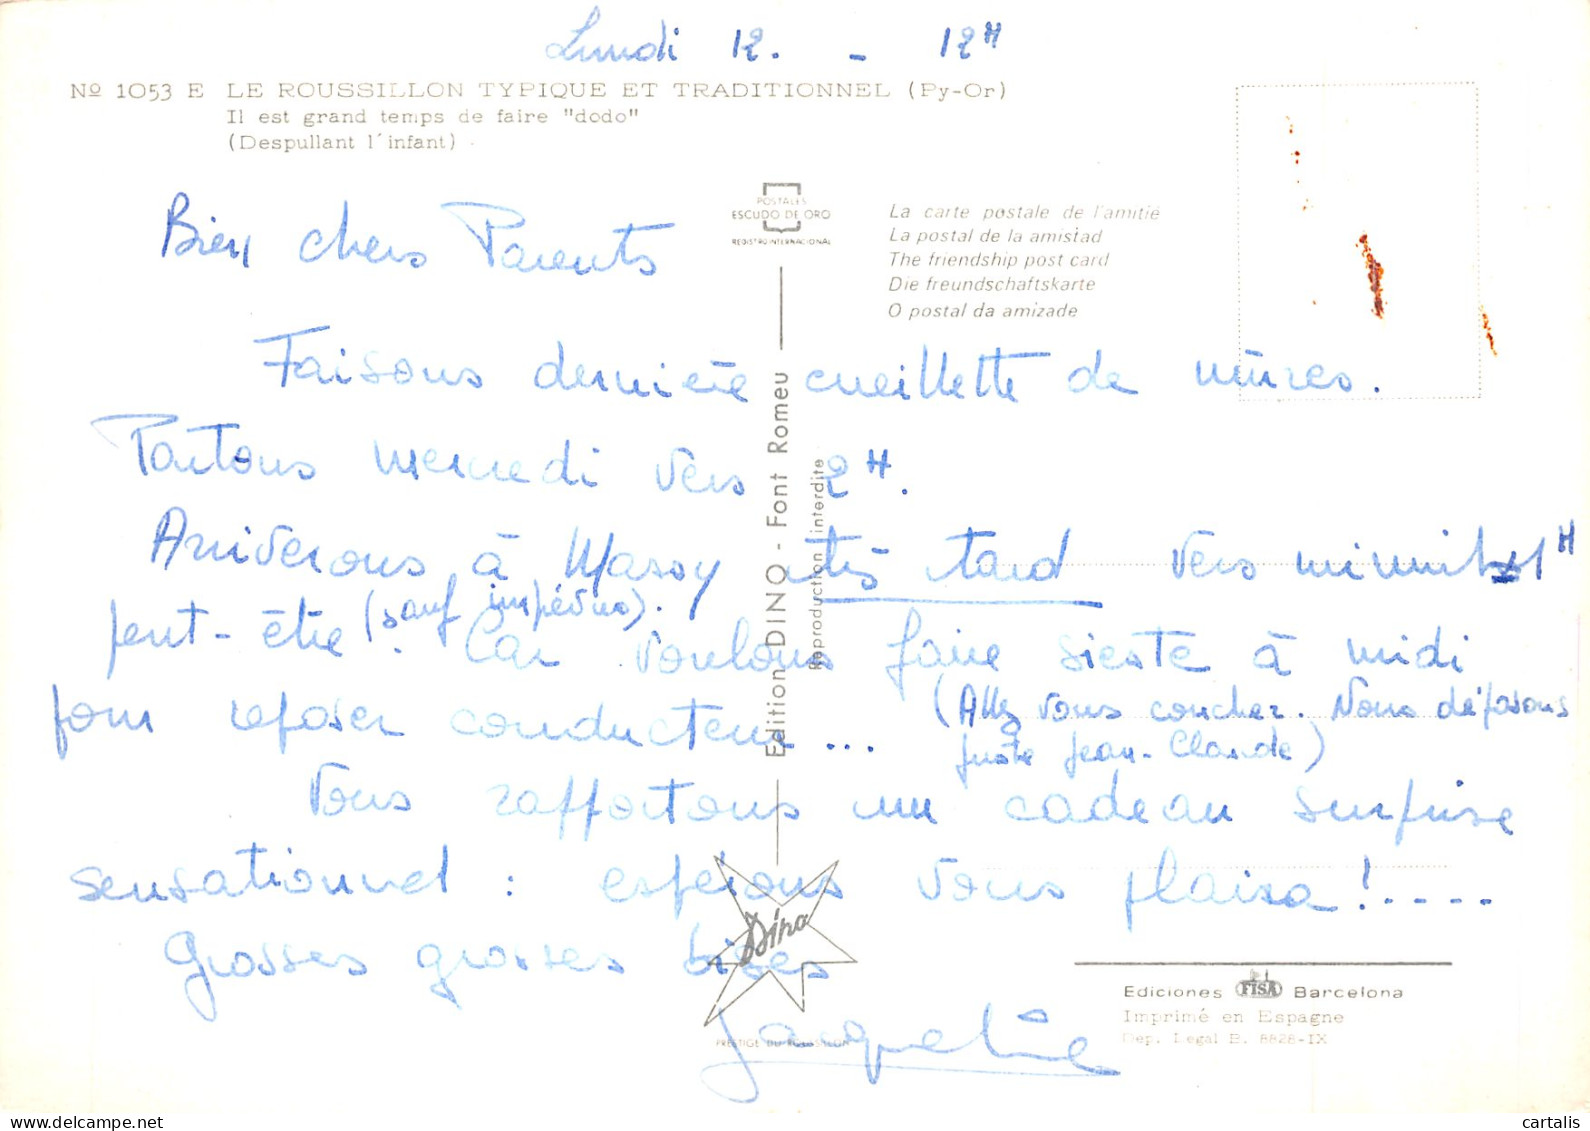 Lundi 12. - 12H
Nº 1053 E LE ROUSSILLON TYPIQUE ET TRADITIONNEL (Py-Or)
Il est grand temps de faire "dodo"
(Despullant l'infant)
POSTALES
ESCUDO DE ORO
REGISTRO INTERNACIONAL
La carte postale de l'amitié
La postal de la amistad
The friendship post card
Die freundschaftskarte
O postal da amizade
Bien chers Parents
Faisons dernière cueillette de mûres.
Partons mercredi vers 2H.
Arriverons à Massy très tard vers minuit 1H
peut-être (sauf imprévus). Car voulons faire sieste à midi
pour reposer conducteur... (Allez vous coucher. Nous déposons
juste Jean-Claude)
Vous rapportons un cadeau surprise
sensationnel : espérons vous plaira !.....
Grosses grosses bises
Jacqueline
Edition DINO - Font Romeu
Reproduction interdite
Dino
PRESTIGE DU ROUSSILLON
Ediciones FISA Barcelona
Imprimé en Espagne
Dep. Legal B. 8828-IX
cartalis.com